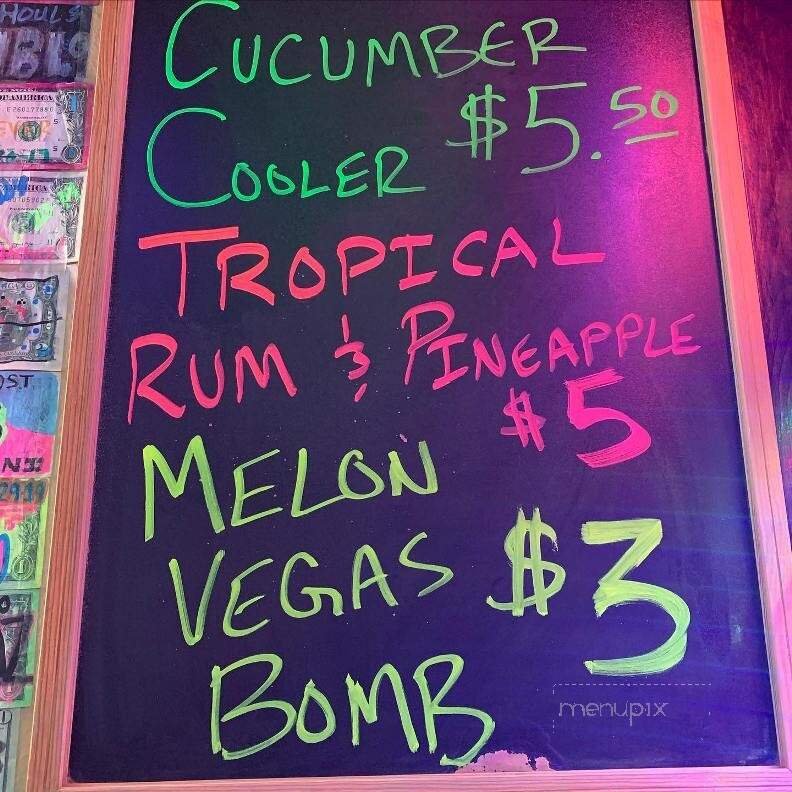 CUCUMBER
COOLER $5.50
TROPICAL
RUM & PINEAPPLE
$5
MELON
VEGAS $3
BOMB
menupix